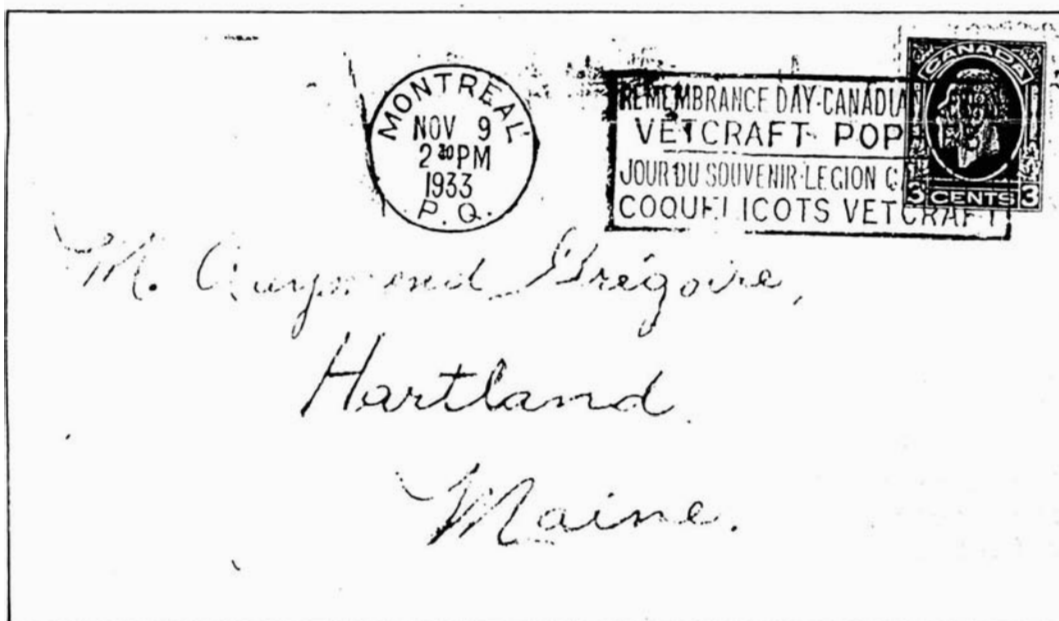 MONTREAL
NOV 9
2 30 PM
1933
P. Q.
REMEMBRANCE DAY-CANADIAN
VETCRAFT POP
JOUR DU SOUVENIR-LEGION C
COQUELICOTS VETCRAFT
CANADA
3 CENTS 3
M. Raymond Grégoire,
Hartland
Maine.